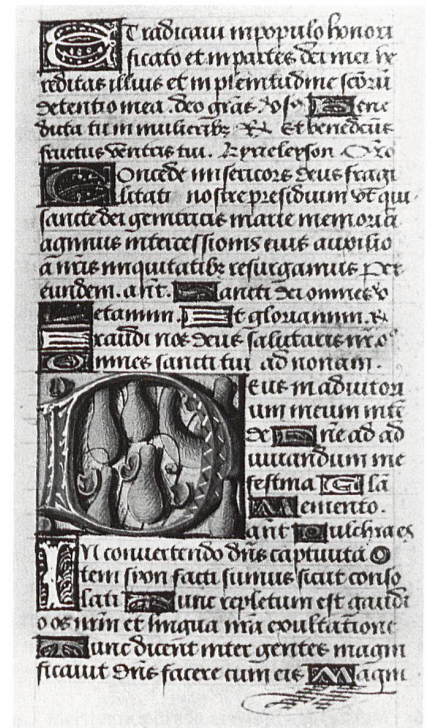 Et radicaui in populo honori
ficato et in partes dei mei he
reditas illius et in plenitudine scõrũ
detentio mea. deo gr̃as. Vs Bene
dicta tu in mulieribȝ ℟ Et benedictus
fructus ventris tui. kyrieleyson Oro
Concede misericors deus fragi
litati nostre presidium vt qui
sancte dei genitricis marie memoriã
agimus intercessionis eius auxilio
a nr̃is iniquitatibȝ resurgamus Per
eundem. ant. Sancti dei omnes v
Letamini. Et gloriamini. ℟
Exaudi nos deus salutaris nr̃o
Omnes sancti tui ad nonam.
Deus in adiutori
um meum intẽ
de Dñe ad ad
iuuandum me
festina Glã
Memento.
ant Pulchra es
In conuertendo dñs captiuitã O
tem syon facti sumus sicut conso
lati Tunc repletum est gaudi
o os nr̃m et lingua nr̃a exultatione
Tunc dicent inter gentes magni
ficauit dñs facere cum eis Magni